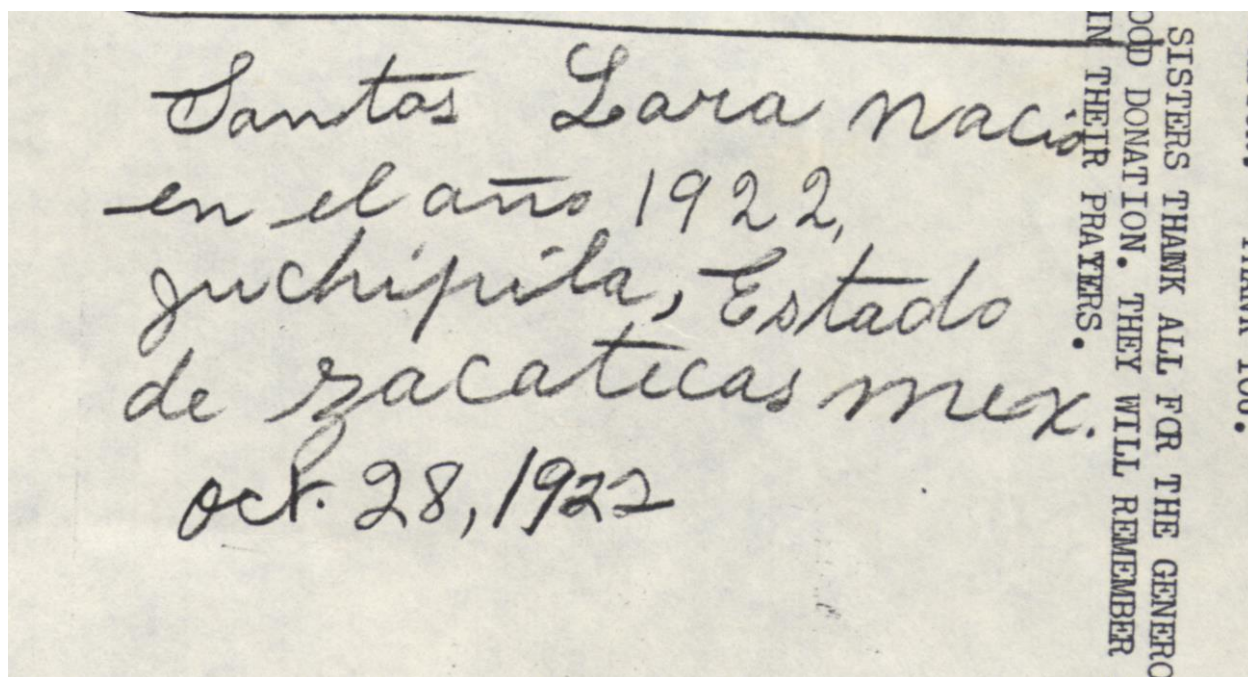 Santos Lara nació
en el año 1922,
juchipila, Estado
de zacatecas mex.
oct. 28, 1922
SISTERS THANK ALL FOR THE GENERO
OOD DONATION. THEY WILL REMEMBER
IN THEIR PRAYERS.
THANK YOU.